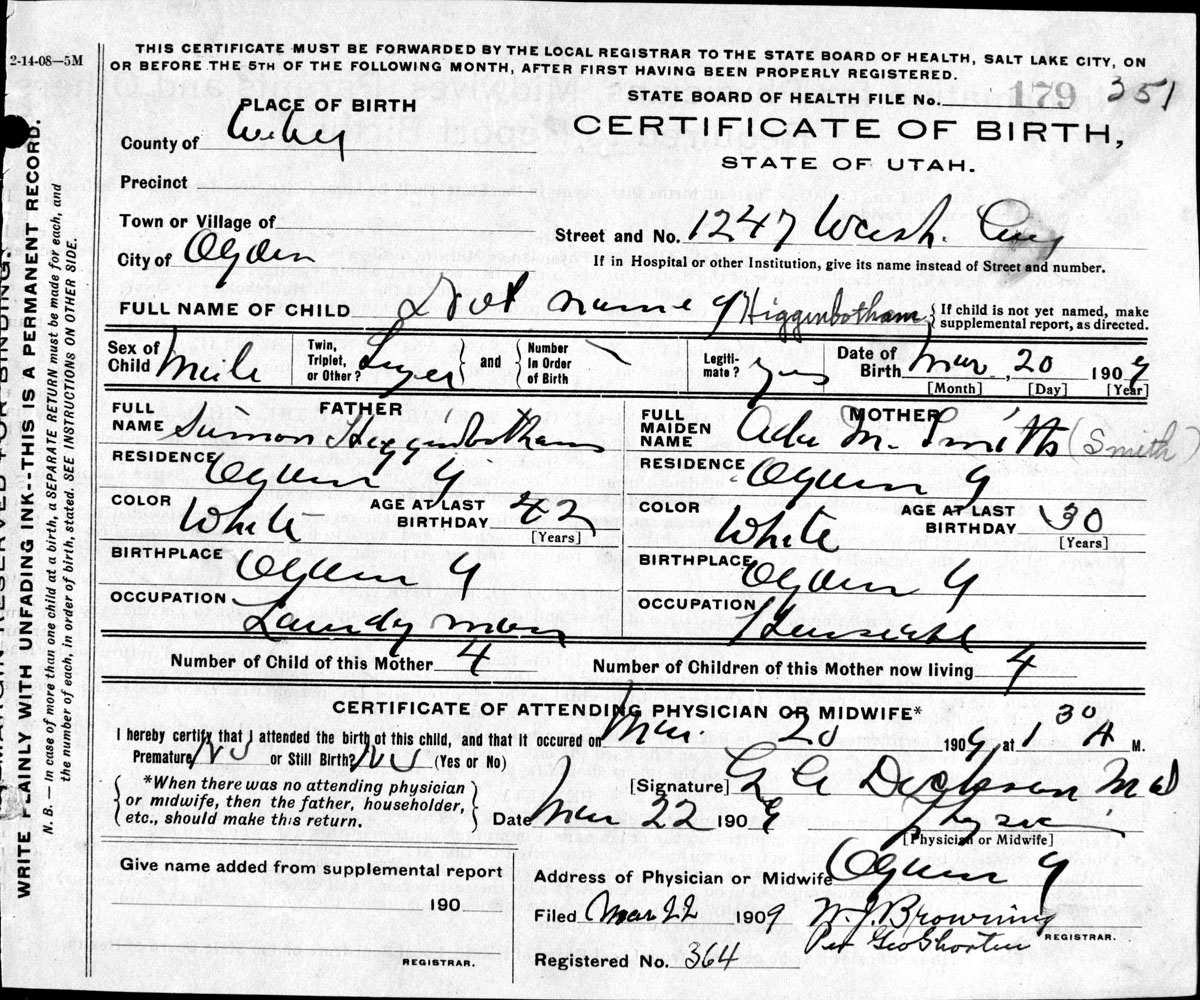 2-14-08—5M
THIS CERTIFICATE MUST BE FORWARDED BY THE LOCAL REGISTRAR TO THE STATE BOARD OF HEALTH, SALT LAKE CITY, ON
OR BEFORE THE 5TH OF THE FOLLOWING MONTH, AFTER FIRST HAVING BEEN PROPERLY REGISTERED.
STATE BOARD OF HEALTH FILE No. 179 351
PLACE OF BIRTH
CERTIFICATE OF BIRTH,
STATE OF UTAH.
County of Weber
Precinct
Town or Village of
Street and No. 1247 Wash. Ave
City of Ogden
If in Hospital or other Institution, give its name instead of Street and number.
FULL NAME OF CHILD Not name Higginbotham { If child is not yet named, make
supplemental report, as directed.
Sex of Child Male Twin, Triplet, or Other? and Number In Order of Birth Legiti- mate? yes Date of Birth Mar 20 1909
[Month] [Day] [Year]
FATHER MOTHER
FULL NAME Simon Higginbotham FULL MAIDEN NAME Ada M. Smith (Smith)
RESIDENCE Ogden RESIDENCE Ogden
COLOR White AGE AT LAST BIRTHDAY 42 [Years] COLOR White AGE AT LAST BIRTHDAY 30 [Years]
BIRTHPLACE Ogden BIRTHPLACE Ogden
OCCUPATION Laundy man OCCUPATION Housewife
Number of Child of this Mother 4 Number of Children of this Mother now living 4
CERTIFICATE OF ATTENDING PHYSICIAN OR MIDWIFE*
I hereby certify that I attended the birth of this child, and that it occured on Mar. 20 1909, at 1 30 A M.
Premature No or Still Birth? No (Yes or No)
*When there was no attending physician
or midwife, then the father, householder,
etc., should make this return.
[Signature] G A Dickson MD
Date Mar 22 1909
[Physician or Midwife]
Give name added from supplemental report
190
REGISTRAR.
Address of Physician or Midwife Ogden
Filed Mar 22 1909 W. J. Browning
REGISTRAR.
Per Geo Shorten
Registered No. 364
WRITE PLAINLY WITH UNFADING INK--THIS IS A PERMANENT RECORD.
N. B. — In case of more than one child at a birth, a SEPARATE RETURN must be made for each, and
the number of each, in order of birth, stated. SEE INSTRUCTIONS ON OTHER SIDE.